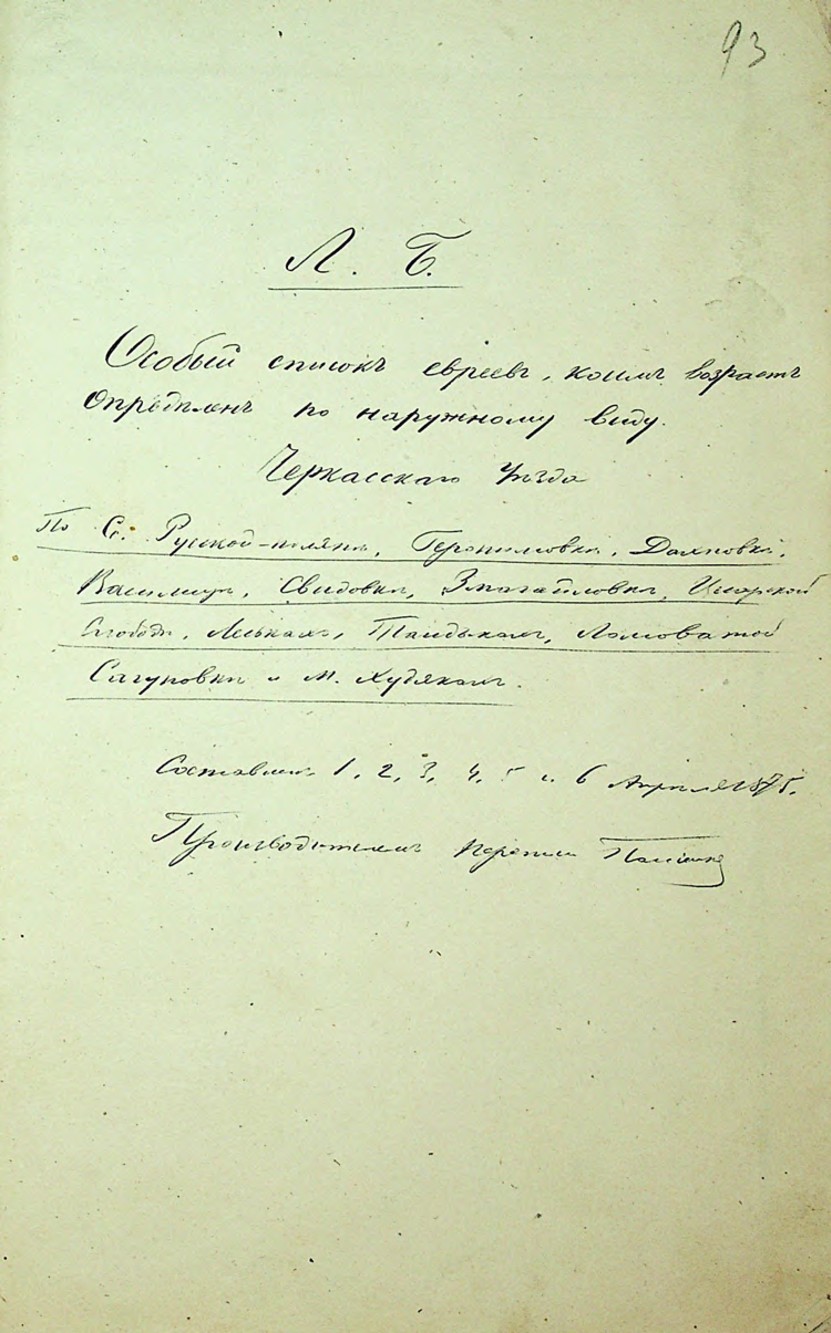 93
Л. Б.
Особый списокъ евреевъ, коимъ возрастъ
опредѣленъ по наружному виду.
Черкасскаго уѣзда
По С. Русской-полянѣ, Геронимовкѣ, Дахновкѣ,
Василицѣ, Свидовкѣ, Змагайловкѣ, Цесарской
Слободѣ, Леськахъ, Талдыкахъ, Ломоватой
Сагуновкѣ и м. Худякахъ.
Составленъ 1, 2, 3, 4, 5 и 6 Апрѣля 1875.
Производителемъ переписи